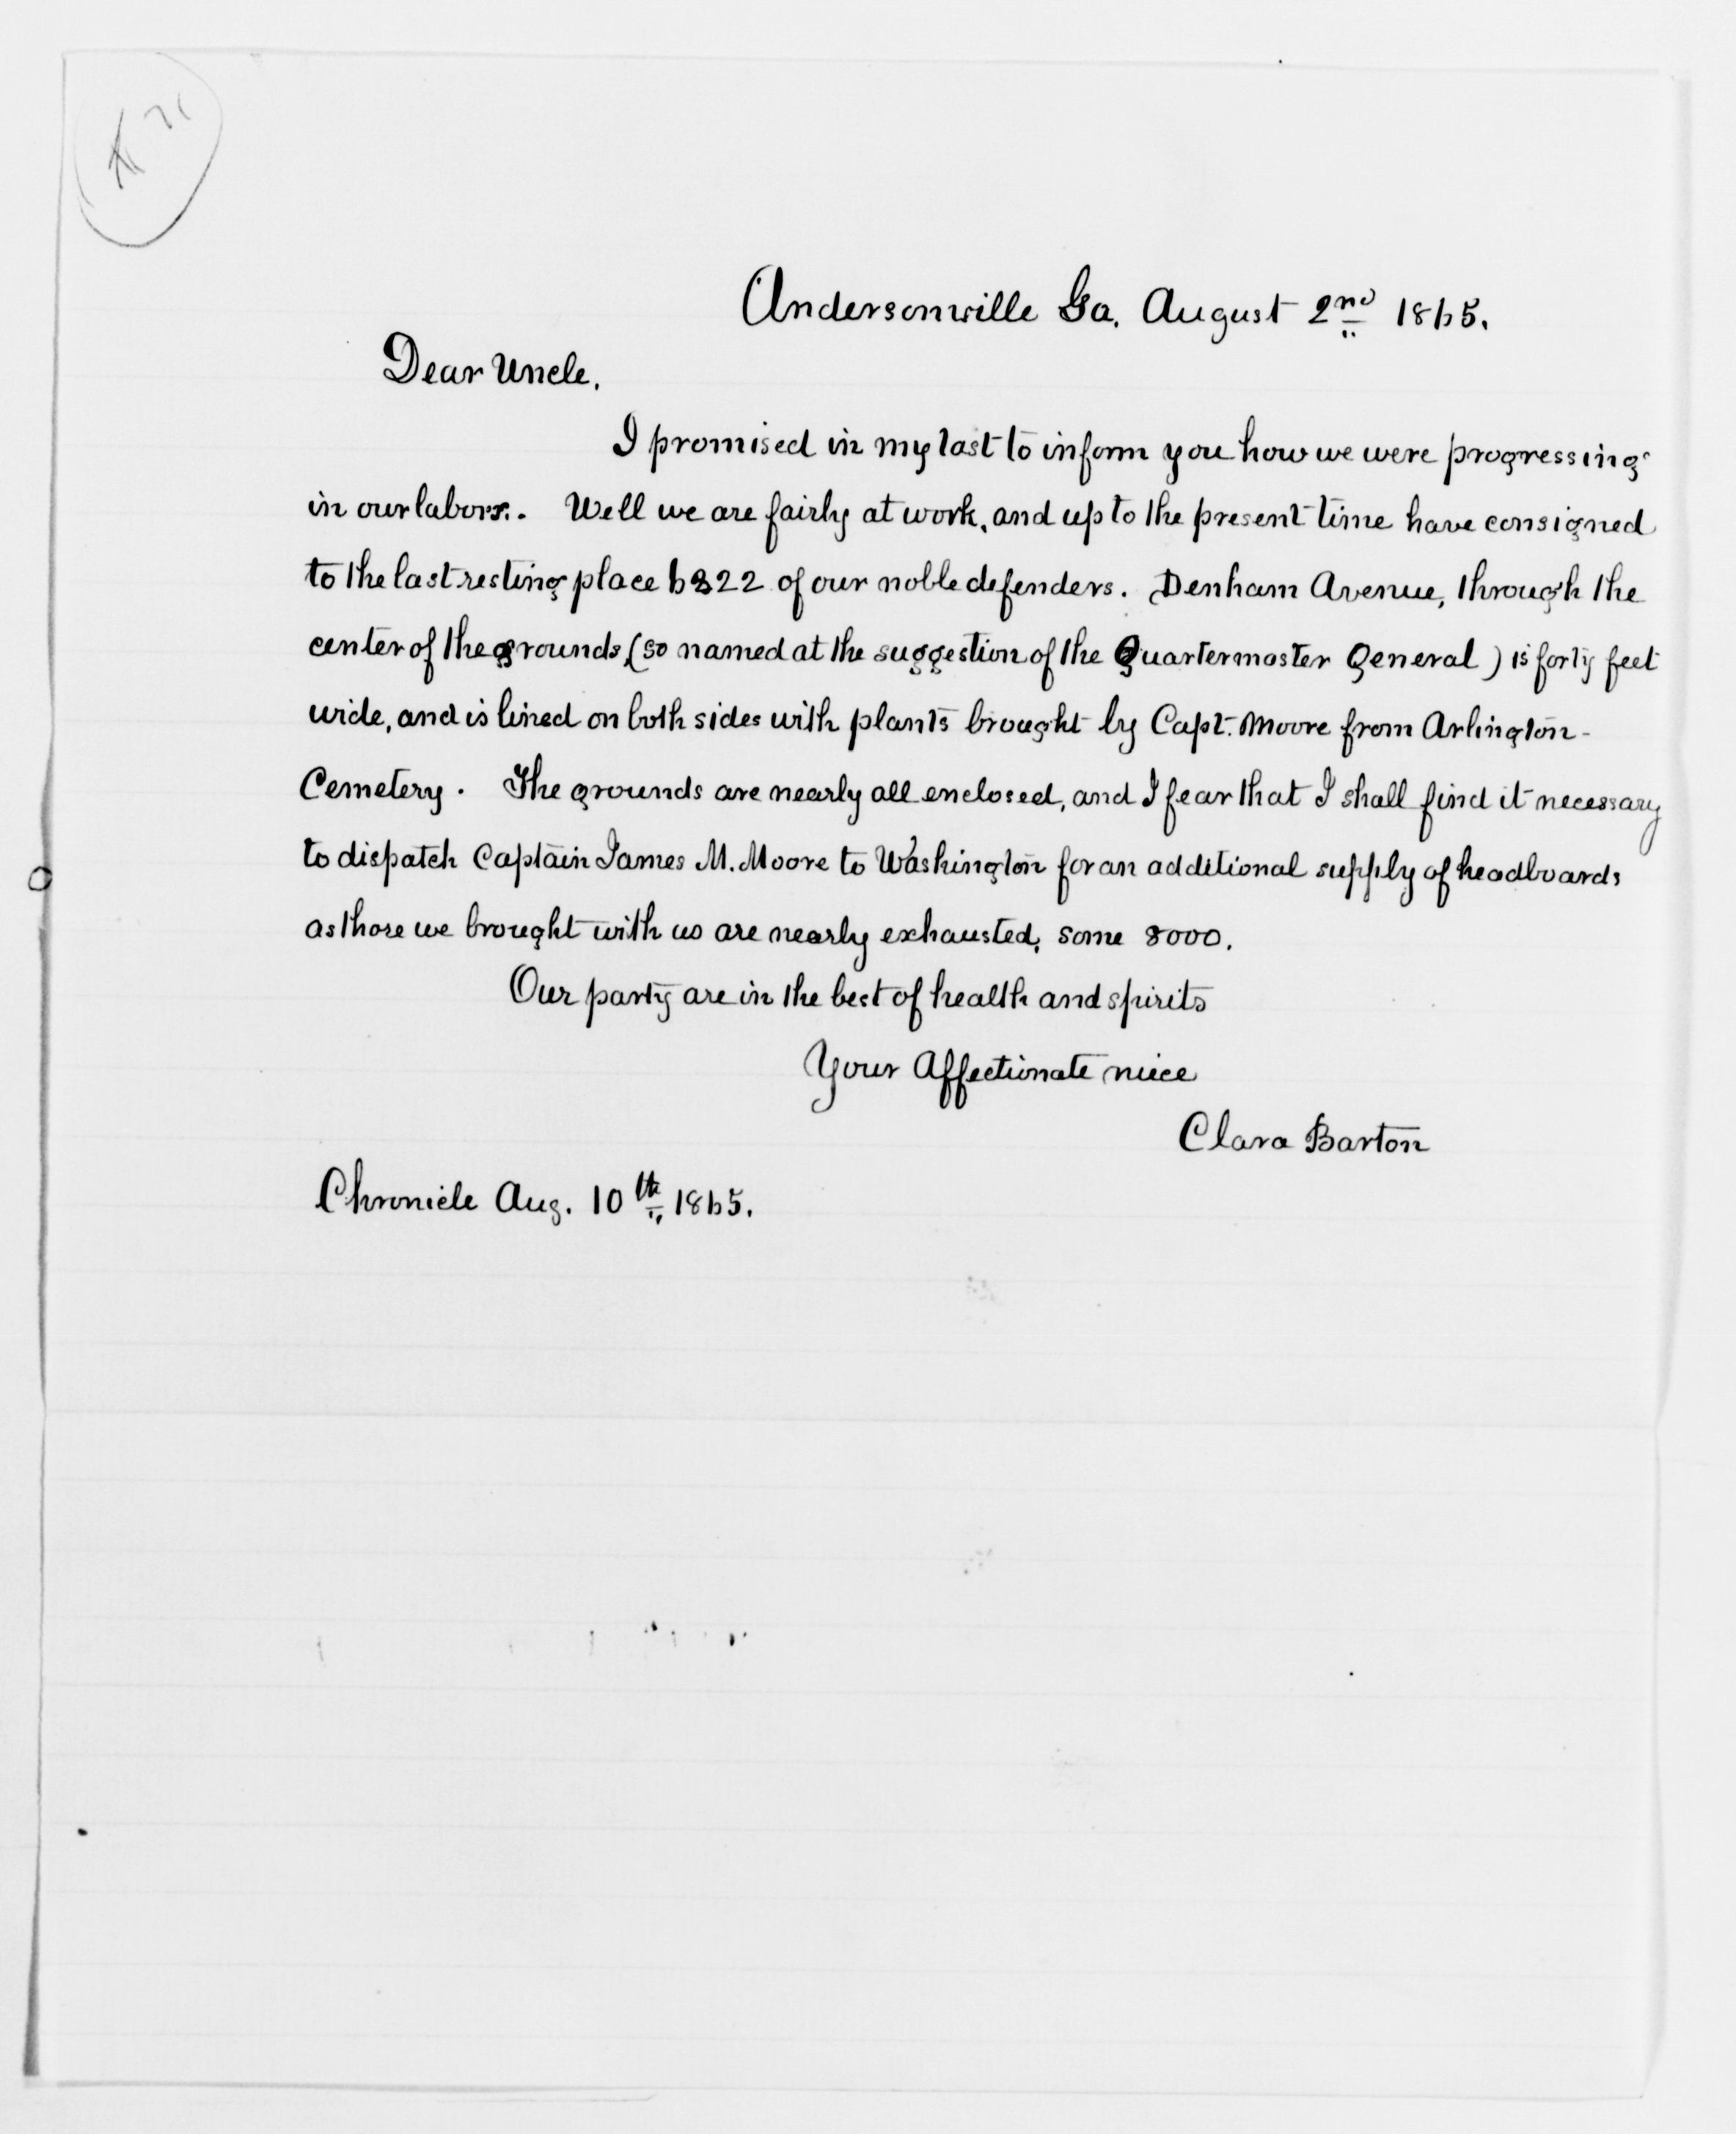 Andersonville Ga. August 2nd 1865.
Dear Uncle.
I promised in my last to inform you how we were progressing
in our labors. Well we are fairly at work, and up to the present time have consigned
to the last resting place 6822 of our noble defenders. Denham Avenue, through the
center of the grounds, (so named at the suggestion of the Quartermaster General) is forty feet
wide, and is lined on both sides with plants brought by Capt. Moore from Arlington
Cemetery. The grounds are nearly all enclosed, and I fear that I shall find it necessary
to dispatch Captain James M. Moore to Washington for an additional supply of headboards
as those we brought with us are nearly exhausted, some 8000.
Our party are in the best of health and spirits
Your Affectionate niece
Clara Barton
Chronicle Aug. 10th 1865.